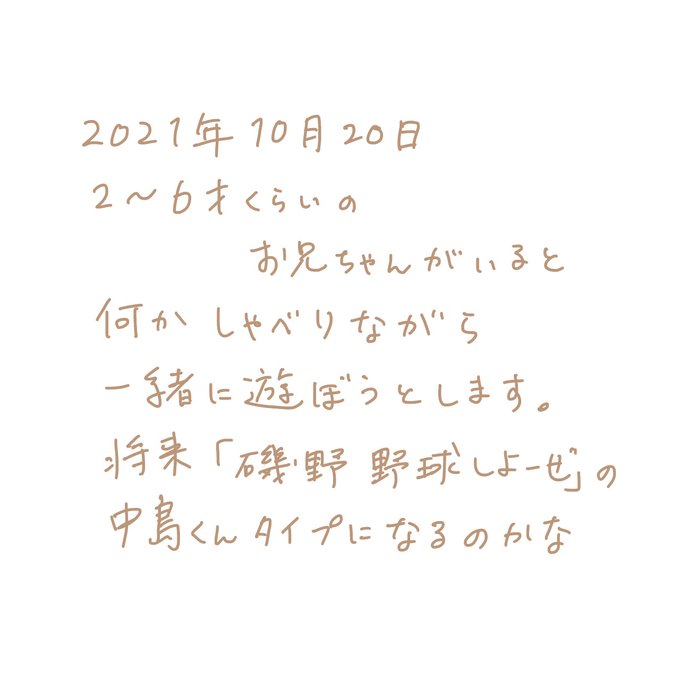 2021年10月20日
2〜6才くらいの
お兄ちゃんがいると
何かしゃべりながら
一緒に遊ぼうとします。
将来「磯野 野球しよーぜ」の
中島くんタイプになるのかな